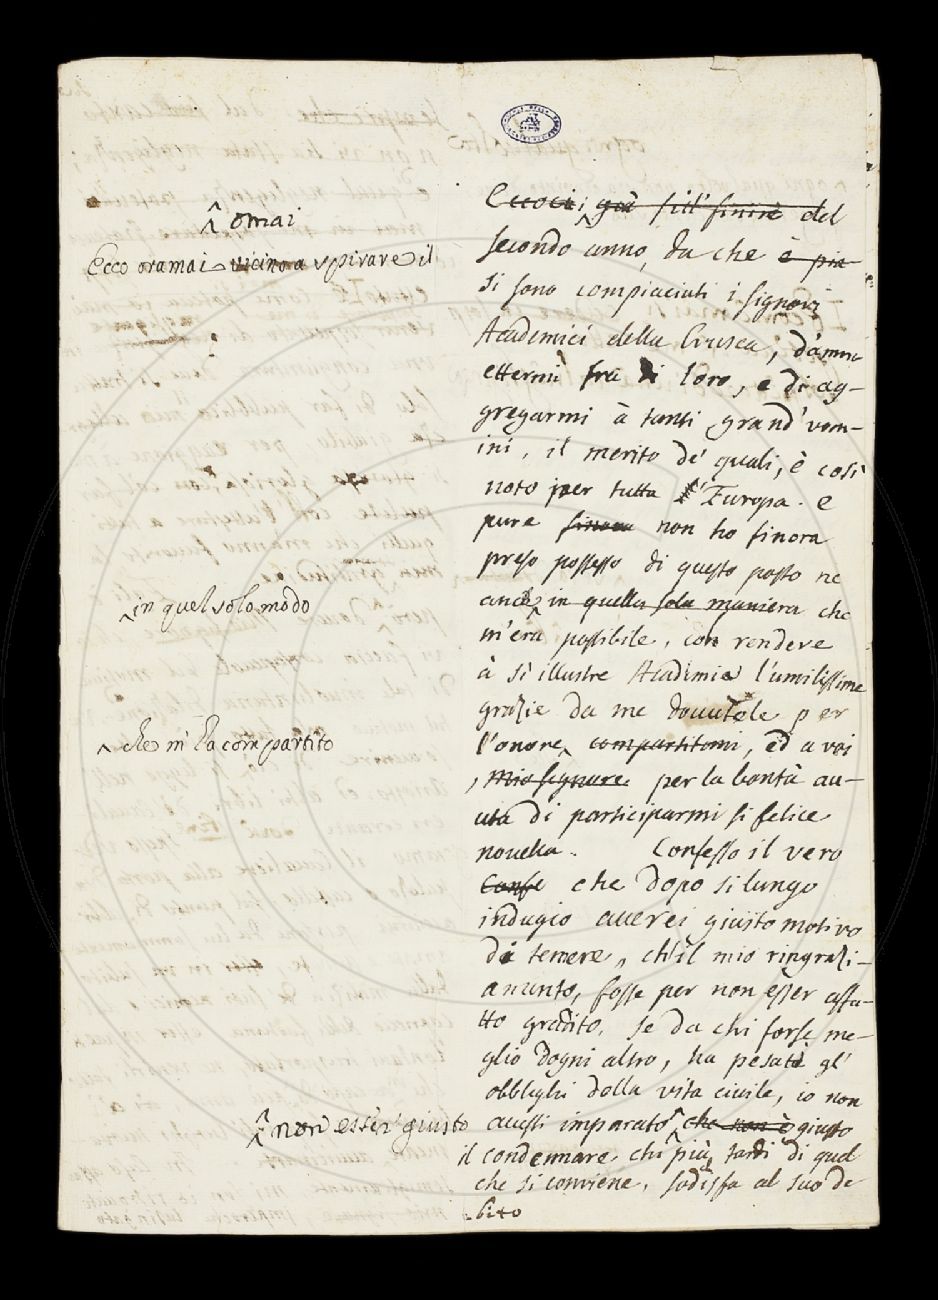 ^ omai
Ecco oramai vicino a spirare il
Eccoci già sull' finire del
secondo anno, da che è pia
si sono compiaciuti i signori
Academici della Crusca, d'amm
ettermi fra di loro, e di ag-
gregarmi à tanti grand' vom-
ini, il merito de' quali, è così
noto per tutta l'Europa. e
pure finora non ho finora
preso possesso di questo posto ne
anche in quella sola maniera che
^ in quel solo modo
m'era possibile, con rendere
à sì illustre Academia l'umilissime
grazie da me douutele per
l'onore ^ compartitomi, ed a voi
^ che m'ha compartito
, mio signore per la bontà au-
uta di participarmi si felice
nouella. Confesso il vero
Confe che dopo si lungo
indugio auerei giusto motivo
di temere, ch'il mio ringrazi-
amento, fosse per non esser affa-
tto gradito, se da chi forse me-
glio d'ogni altro, ha pesate gl'
obblighi della vita ciuile, io non
auessi imparato ^ che non è giusto
^ non esser giusto
il condennare chi più tardi di quel
che si conviene, sodisfa al suo de
bito